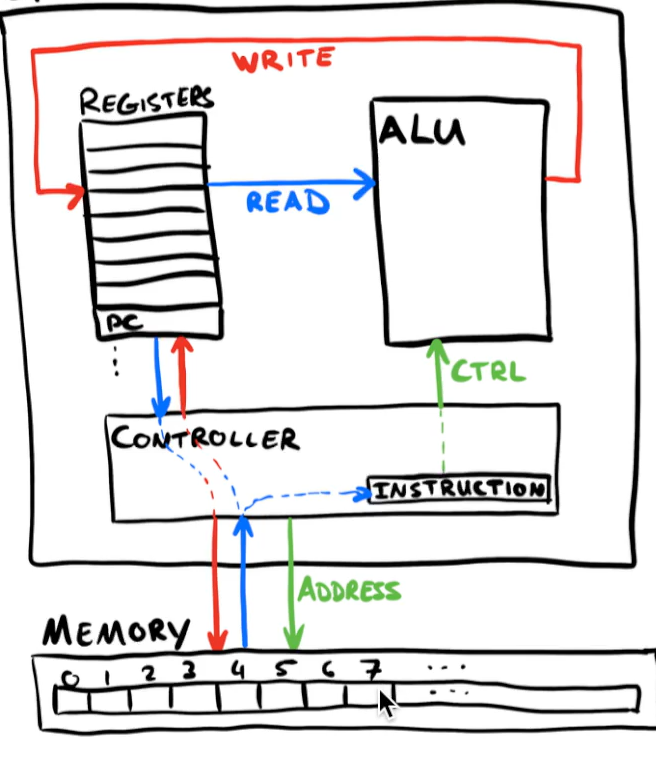 WRITE
REGISTERS
ALU
READ
PC
CTRL
CONTROLLER
INSTRUCTION
ADDRESS
MEMORY
0 1 2 3 4 5 6 7 ...
...